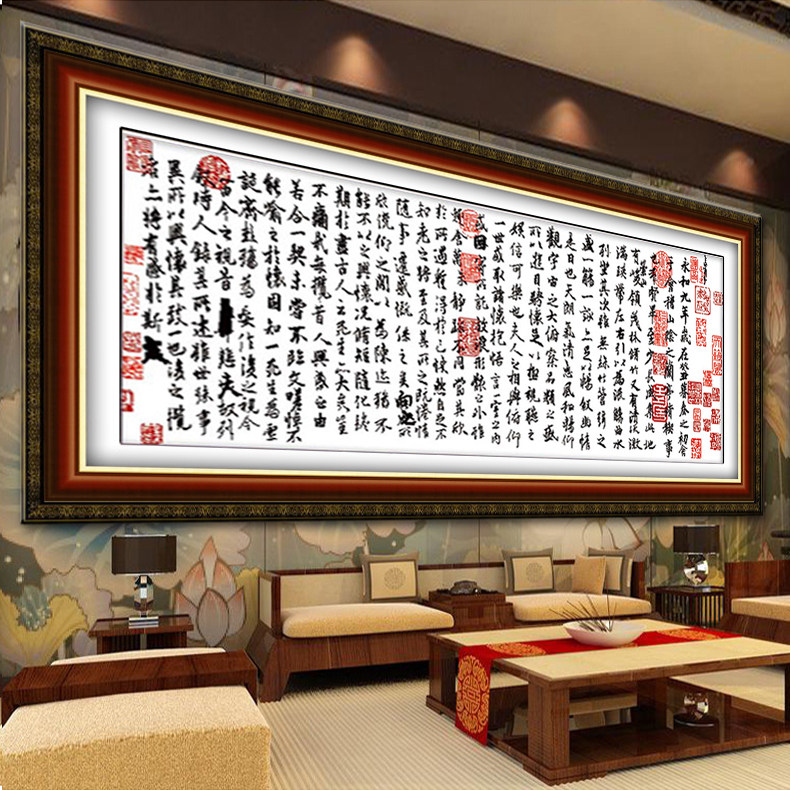 永和九年歲在癸丑暮春之初會
于會稽山陰之蘭亭脩稧事
也羣賢畢至少長咸集此地
有峻領茂林脩竹又有清流激
湍暎帶左右引以為流觴曲水
列坐其次雖無絲竹管弦之
盛一觴一詠亦足以暢敘幽情
是日也天朗氣清惠風和暢仰
觀宇宙之大俯察品類之盛
所以遊目騁懷足以極視聽之
娛信可樂也夫人之相與俯仰
一世或取諸懷抱悟言一室之內
或因寄所託放浪形骸之外雖
趣舍萬殊靜躁不同當其欣
於所遇暫得於己快然自足不
知老之將至及其所之既惓情
隨事遷感慨係之矣向之所
欣俛仰之間以為陳迹猶不
能不以之興懷況脩短隨化終
期於盡古人云死生亦大矣豈
不痛哉每攬昔人興感之由
若合一契未嘗不臨文嗟悼不
能喻之於懷固知一死生為虛
誕齊彭殤為妄作後之視今
亦由今之視昔悲夫故列
敘時人錄其所述雖世殊事
異所以興懷其致一也後之攬
者亦將有感於斯文